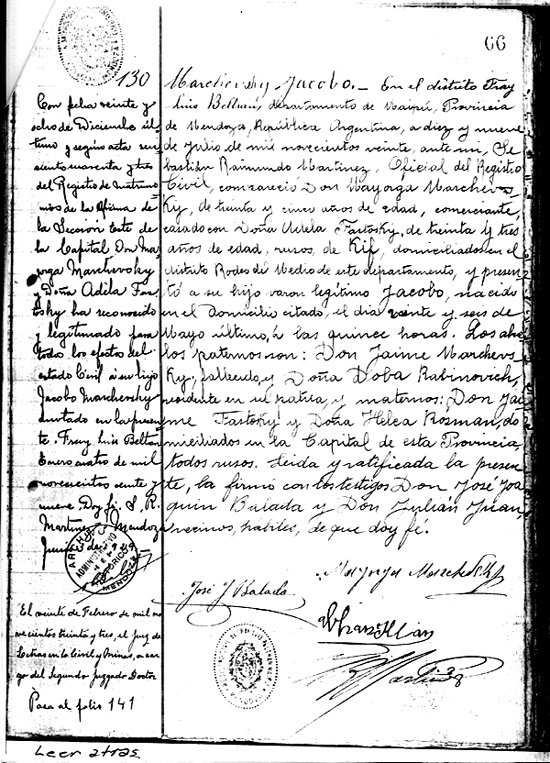 66
130
Con fecha veinte y
ocho de Diciembre úl-
timo y según acta
ciento noventa y tres
del Registro de Matrimo-
nios de la Oficina de
la Sección Este de
la Capital Don Ma-
yorga Marchevsky
y Doña Adila Far-
tsky ha reconocido
y legitimado para
todos los efectos del
estado Civil a su hijo
Jacobo Marchevsky
anotado en la presen-
te. Fray Luis Beltran
Enero cuatro de mil
novecientos veinte y
nueve. Doy fé. S. R.
Martinez Mendoza
ARCHIVO
ADMINISTRATIVO
HISTORICO
MENDOZA
El veinte de Febrero de mil no-
vecientos treinta y tres, el Juez de
Letras en lo Civil y Minas, a car-
go del Segundo Juzgado Doctor
Pasa al folio 141
Marchevsky Jacobo. — En el distrito Fray
Luis Beltran, departamento de Maipú, Provincia
de Mendoza, República Argentina, a diez y nueve
de Julio de mil novecientos veinte, ante mi, Se-
bastián Raimundo Martinez, Oficial del Registro
Civil, compareció Don Mayorga Marchevs-
ky, de treinta y cinco años de edad, comerciante,
casado con Doña Adela Fartosky, de treinta y tres
años de edad, rusos, de Kif, domiciliados en el
distrito Rodeo del Medio de este departamento, y presen-
tó a su hijo varon legítimo Jacobo, nacido
en el Domicilio citado, el dia veinte y seis de
Mayo último, á las quince horas. Los abue-
los paternos son: Don Jaime Marchevs
Ky, fallecido, y Doña Doba Rabinovich,
residente en su patria, y maternos: Don Jai-
me Fartosky y Doña Helea Rosman, do-
miciliados en la Capital de esta Provincia,
todos rusos. Leida y ratificada la presen-
te, la firmó con los testigos Don José Joa-
quin Balada y Don Julián Juan,
vecinos, habiles, de que doy fé.
José J Balada
Leer atras